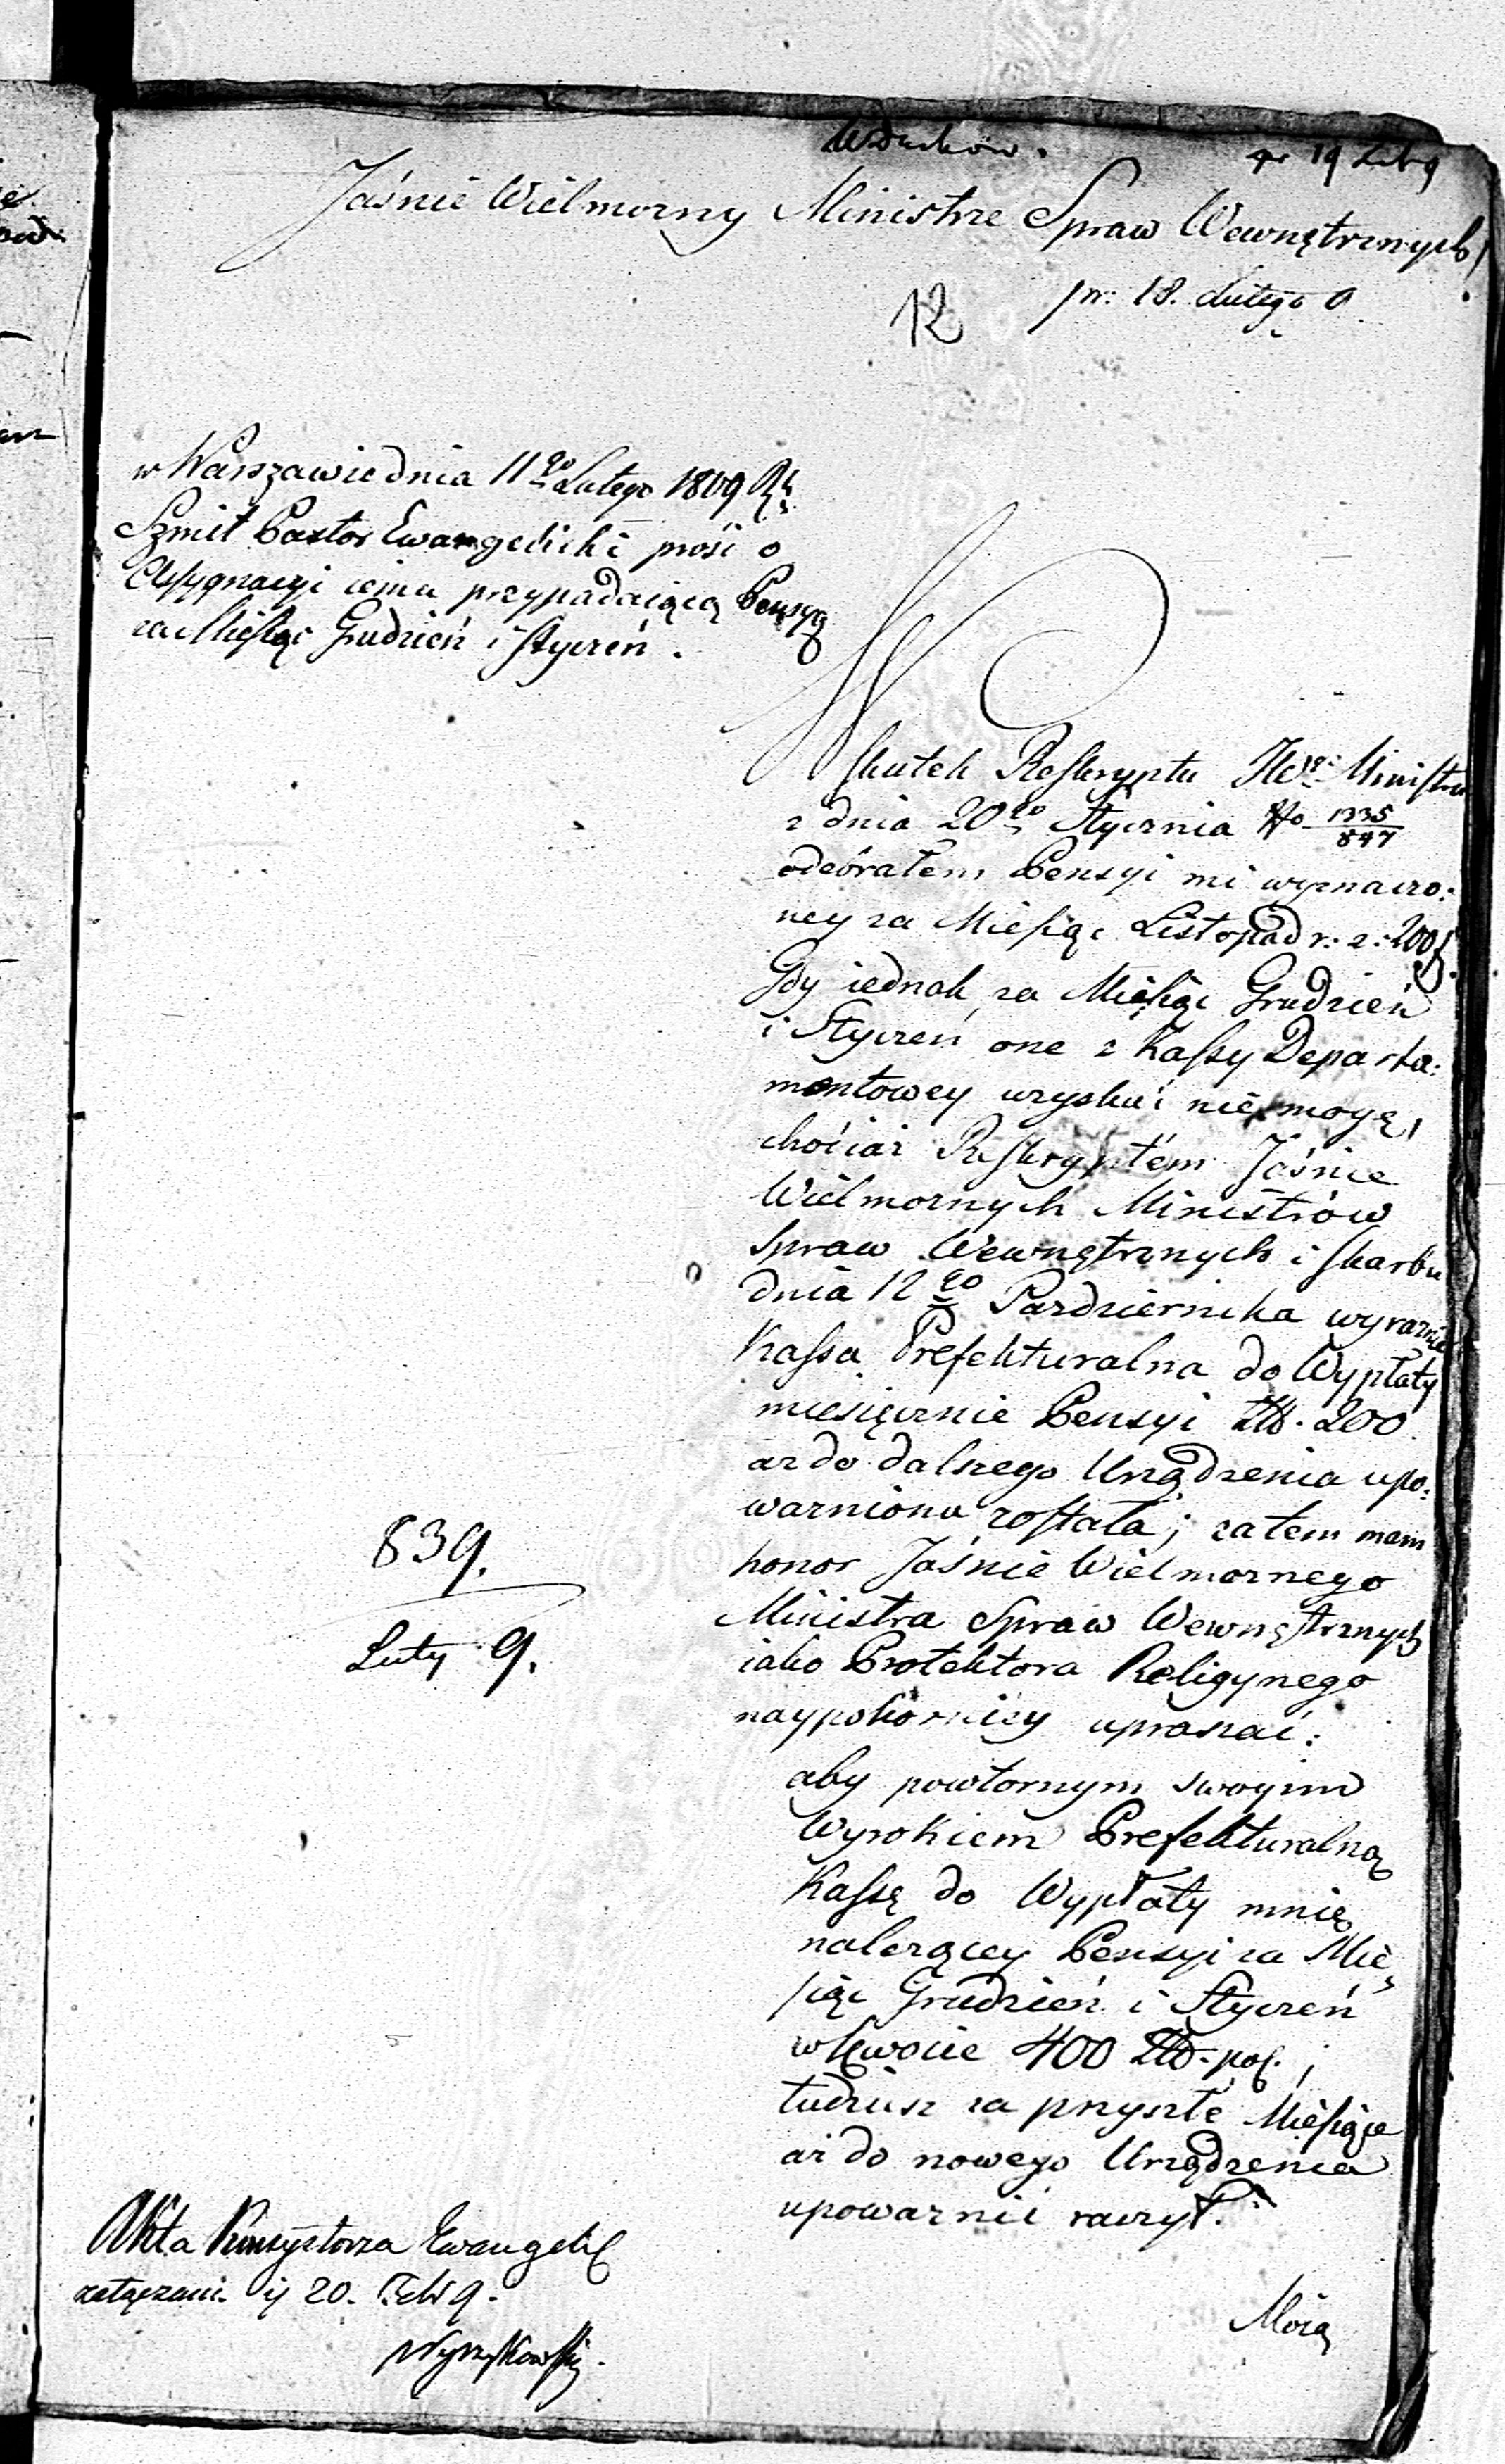 pr 19 Lutg 9
Jaśnie Wielmozny Ministrze Spraw Wewnętrznych!
pr: 18. Lutego
12
w Warszawie dnia 11go Lutego 1809 Rk
Szmit Pastor Ewangelicki prosi o
Assygnacyi iemu przypadaiącą Pensyą
za Miesiąc Grudzień i Styczeń.
W skutek Reskryptu JWgo Ministra
z dnia 20go Stycznia No 1335/847
odebrałem Pensyi mi wyznaczo:
ney za Miesiąc Listopad r: z: 200 f.
Gdy iednak za Miesiąc Grudzień
i Styczeń one z Kassy Departa:
mentowey uzyskać nie mogę,
chociaż Reskryptem Jaśnie
Wielmoznych Ministrów
Spraw Wewnętrznych i Skarbu
dnia 12go Pazdziernika wyraznie
Kassa Prefekturalna do Wypłaty
miesięcznie Pensyi Zł. 200
az do dalszego Urządzenia upo:
wazniona została; zatem mam
honor Jaśnie Wielmoznego
Ministra Spraw Wewnętrznych
iako Protektora Religynego
naypokorniey upraszać:
aby powtornym swoyim
Wyrokiem Prefekturalną
Kassę do Wypłaty mnie
nalezącey Pensyi za Mie=
siąc Grudzień i Styczeń
w kwocie 400 Zł. pol.;
tudziesz za przyszłe Miesiące
aż do nowego Urządzenia
upowaznić raczył.
839.
Luty 9.
Akta Konsystorza Ewangelic
załączani. ij 20. Febr 9.
Wyszkowski.
Moią